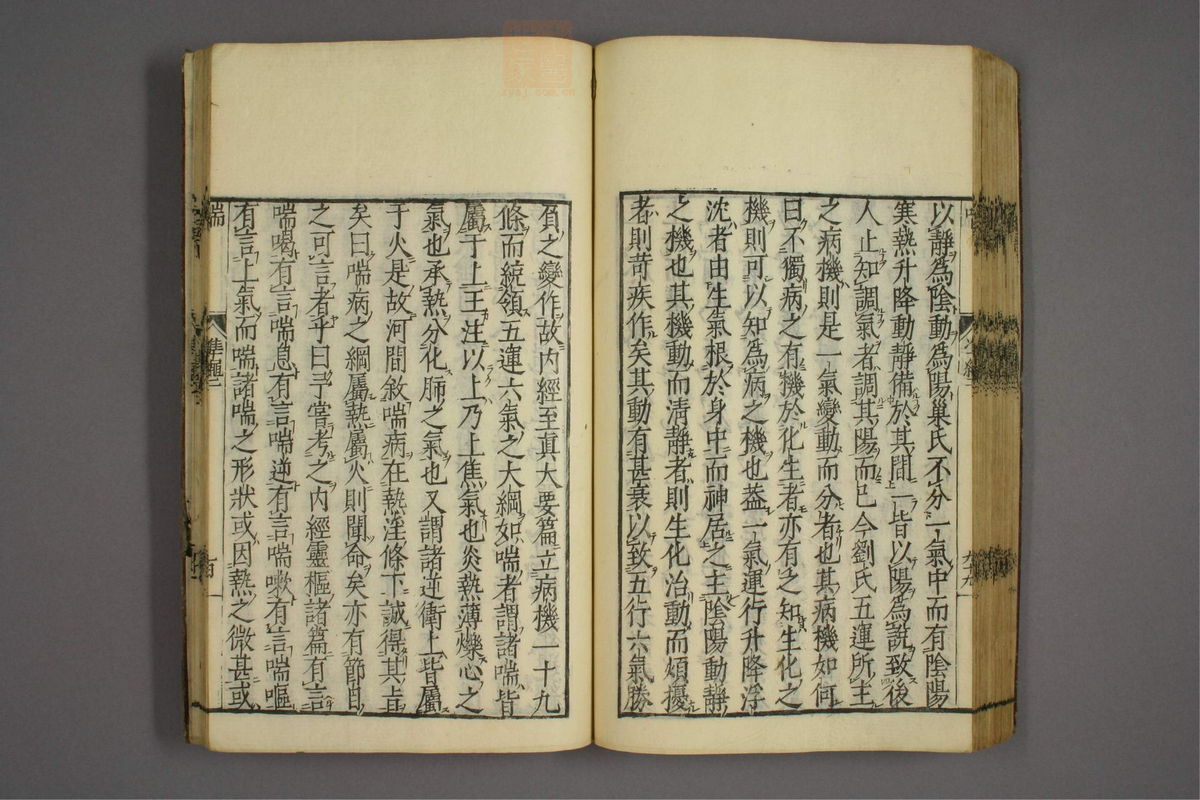 以靜爲陰動爲陽巢氏不分一氣中而有陰陽
寒熱升降動靜備於其間一皆以陽為說致後
人止知調氣者調其陽而已今劉氏五運所主
之病機則是一氣變動而分者也其病機如何
曰不獨病之有機於化生者亦有之知生化之
機則可以知爲病之機也葢一氣運行升降浮
沈者由生氣根於身中而神居之主陰陽動靜
之機也其機動而清靜者則生化治動而煩擾
者則苛疾作矣其動有甚衰以致五行六氣勝
負之變作故內經至真大要篇立病機一十九
條而統領五運六氣之大綱如喘者謂諸喘皆
屬于上王注以上乃上焦氣也炎熱薄爍心之
氣也承熱分化肺之氣也又謂諸逆衝上皆屬
于火是故河間敘喘病在熱淫條下誠得其旨
矣曰喘病之綱屬熱屬火則聞命矣亦有節目
之可言者乎曰予嘗考之內經靈樞諸篇有言
喘喝有言喘息有言喘逆有言喘嗽有言喘嘔
有言上氣而喘諸喘之形狀或因熱之微甚或
喘
準繩二